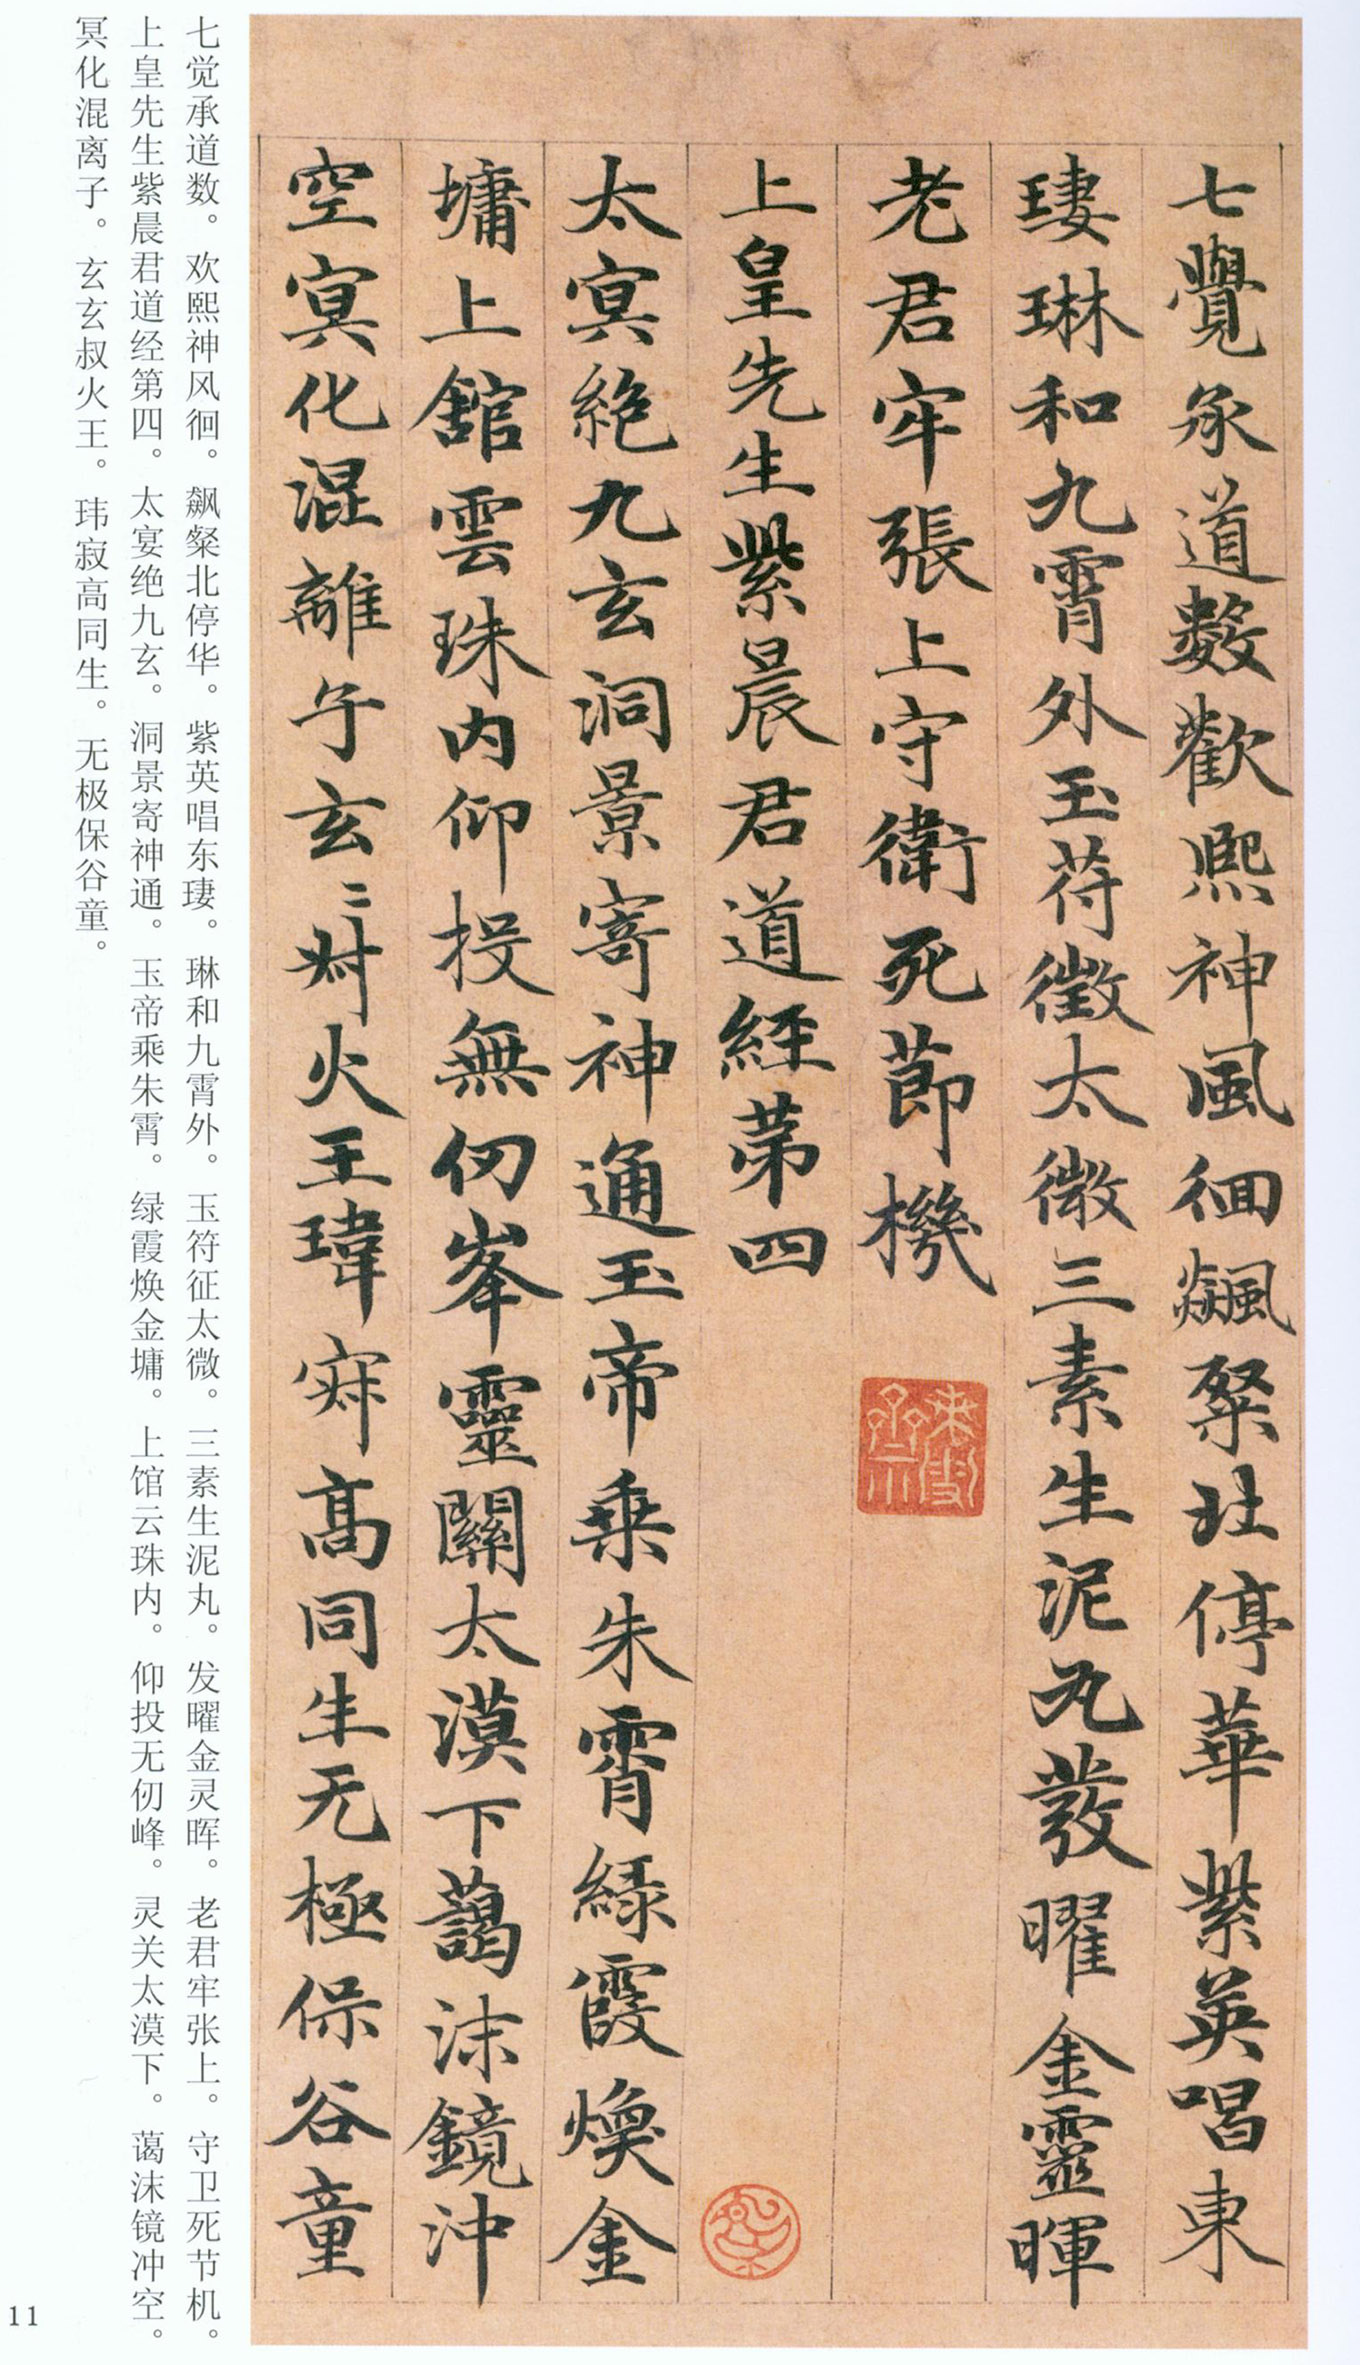 七覺承道數歡熙神風徊飆粲北停華紫英唱東
琫琳和九霄外玉苻徵太微三素生泥丸發曜金靈暉
老君牢張上守衛死節機
上皇先生紫晨君道經第四
太冥絶九玄洞景寄神通玉帝乗朱霄緑霞煥金
墉上舘雲珠内仰投無仞峯靈關太漠下藹沫鏡沖
空冥化混離子玄〻叔火王瑋寂高同生无極保谷童
七觉承道数。欢熙神风徊。飙粲北停华。紫英唱东㻑。琳和九霄外。玉符征太微。三素生泥丸。发曜金灵晖。老君牢张上。守卫死节机。
上皇先生紫晨君道经第四。太宴绝九玄。洞景寄神通。玉帝乘朱霄。绿霞焕金墉。上馆云珠内。仰投无仞峰。灵关太漠下。蔼沫镜冲空。
冥化混离子。玄玄叔火王。玮寂高同生。无极保谷童。
11